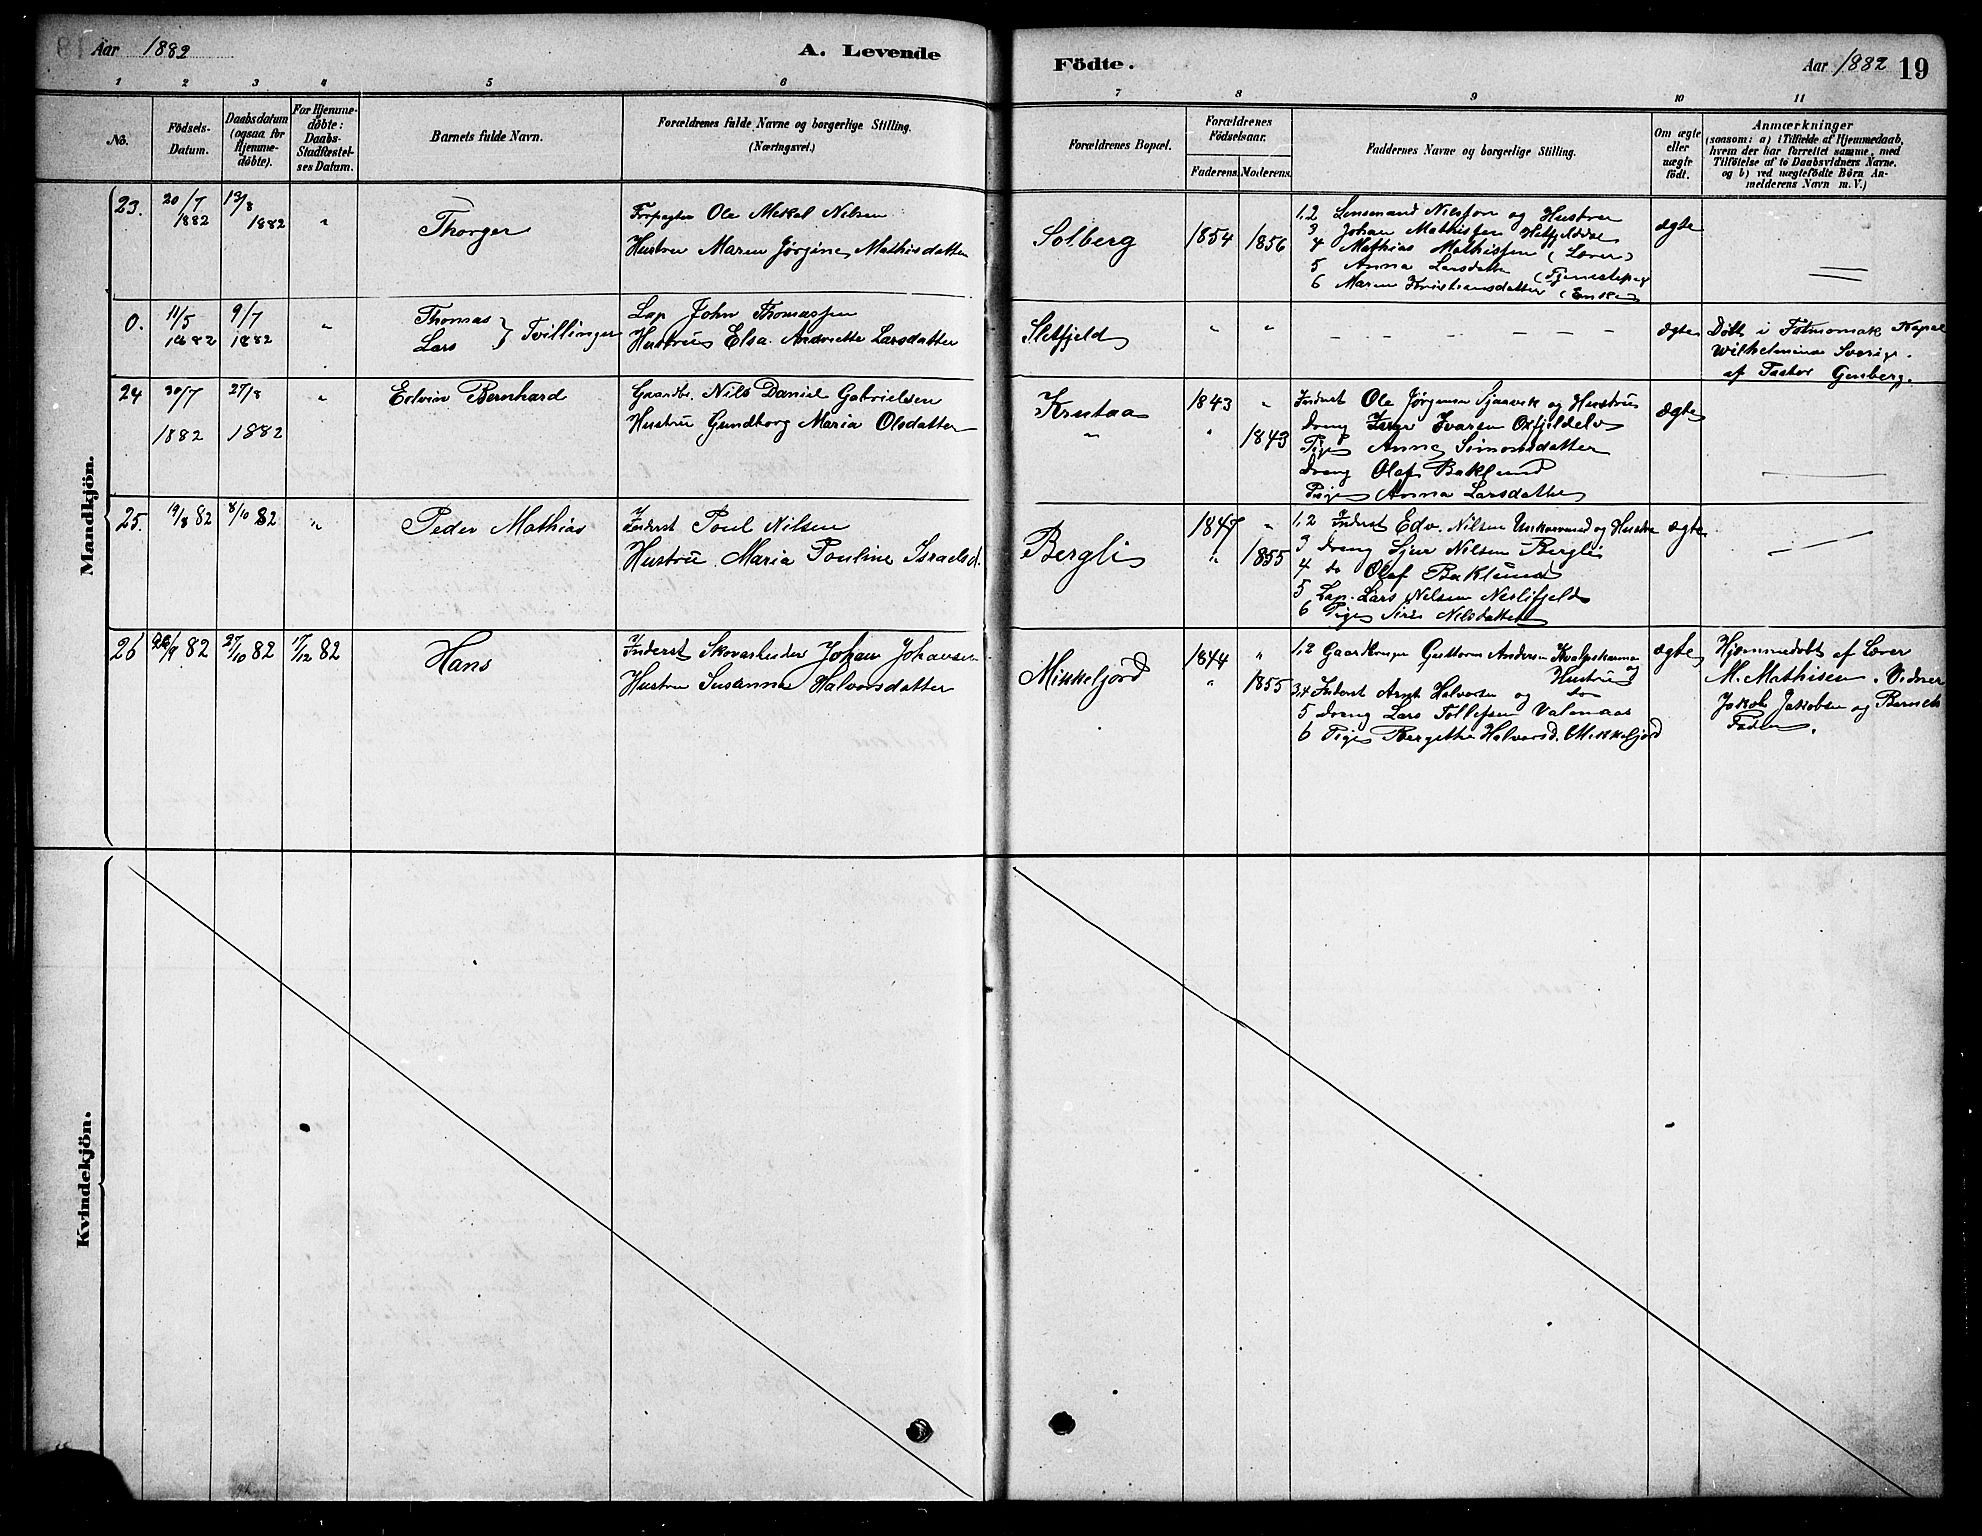 Aar 1882
A. Levende
Födte.
Aar 1882
19
1 2 3 4 5 6 7 8 9 10 11
No.
Födsels-
Datum.
Daabsdatum
(ogsaa for
Hjemme-
døbte).
For Hjemme-
døbte:
Daabs-
Stadfæstel-
ses Datum.
Barnets fulde Navn.
Forældrenes fulde Navne og borgerlige Stilling.
(Næringsvei.)
Forældrenes Bopæl.
Forældrenes
Födselsaar.
Faderens.
Moderens.
Faddernes Navne og borgerlige Stilling.
Om ægte
eller
uægte
født.
Anmærkninger
(saasom: a) i Tilfælde af Hjemmedaab,
hvem der har forrettet samme, med
Tilföielse af to Daabsvidners Navne,
og b) ved uægtefödte Börn An-
melderens Navn m. V.)
Mandkjön.
23.
20/7
1882
13/8
1882
"
Thorger
Forpagter Ole Mekal Nilsen
Hustru Maren Jørgine Mathisdatter
Solberg
1854
1856
1,2 Lensmand Nilsson og Hustru
3 Johan Mathissen
4 Mathias Mathissen (Lærer)
5 Anna Larsdatter (Tjenestepige
6 Maren Kristiansdatter (Enke)
ægte
0.
11/5
1882
9/7
1882
"
Thomas
Lars
} Tvillinger
Lap John Thomassen
Hustru Elsa Andriette Larsdatter
Sletfjeld
" "
– – – – – –
ægte
Døbt i Fatmomak Kapel
Wilhelmina Sverige.
af Pastor
24
30/7
1882
27/8
1882
"
Edvin Bernhard
Gaardbr. Nils Daniel Gabrielsen
Hustru Gundborg Maria Olsdatter
Krutaa
"
1843 "
" 1843
Inderst Ole Jørgensen Sjaavik og Hustru
Dreng Ivarsen
Pige Anna Simonsdatter
Dreng Olaf Baklund
Pige Anna Larsdatter
ægte
25.
19/8 82
8/10 82
"
Peder Mathias
Inderst Poul Nilsen
Hustru Maria Pouline Israelsd.
Bergli
1847 "
" 1855
1,2 Inderst Edv. Nilsen Unkarvand og Hustru
3 Dreng Sjur Nilsen Bergli
4 do Olaf Baklund
5 Lap. Lars Nilsen
6 Pige Siri Nilsdatter
ægte
26
/9 82
27/10 82
17/12 82
Hans
Inderst Skovarbeider Johan Johansen
Hustru Susanna Halvorsdatter
Mikkeljord
1844 "
" 1855
1,2 Gaardbruger Guttorm Andersen Kvalpskarmo og
Hustru
3,4 Inderst Arnt Halvorsen og do
5 Dreng Lars Tollefsen Valmaas
6 Pige Bergitha Halvorsd. Mikkeljord
ægte
Hjemmedøbt af Lærer
M. Mathisen. Vidner
Jakob Jakobsen og Barnets
Fader.
Kvindekjön.